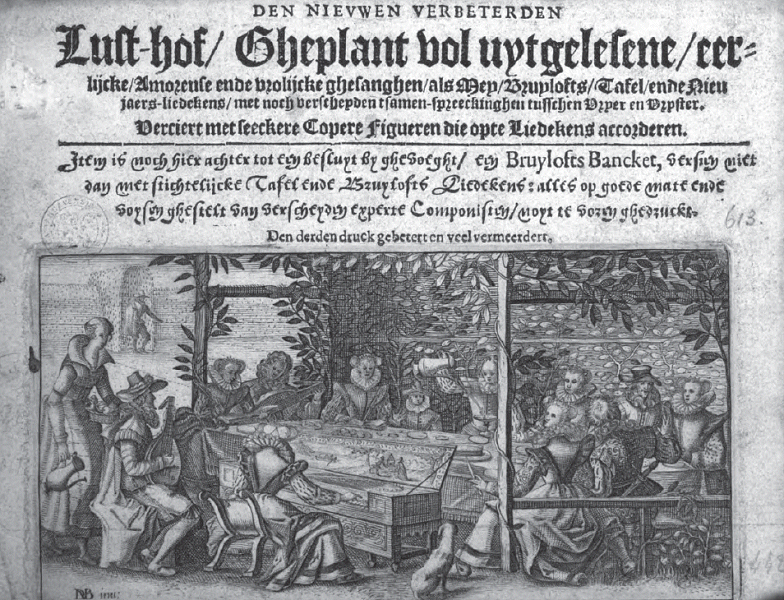 DEN NIEVWEN VERBETERDEN
Lust-hof/ Gheplant vol uytgelesene/eer=
lijcke/Amoreuse ende vrolijcke ghesanghen/als Mey/Bruylofts/Tafel/ende Nieu
jaers-liedekens/ met noch verscheyden tsamen-spreeckinghen tusschen Vryer en Vryster.
Verciert met seeckere Copere Figueren die opte Liedekens accorderen.
Item is noch hier achter tot een besluyt by ghevoeght/ een Bruylofts Bancket, versien niet
dan met stichtelijcke Tafel ende Bruylofts Liedekens: alles op goede mate ende
voysen ghestelt van verscheyden experte Componisten/noyt te voren ghedruckt.
613.
Den derden druck gebetert en veel vermeerdert.